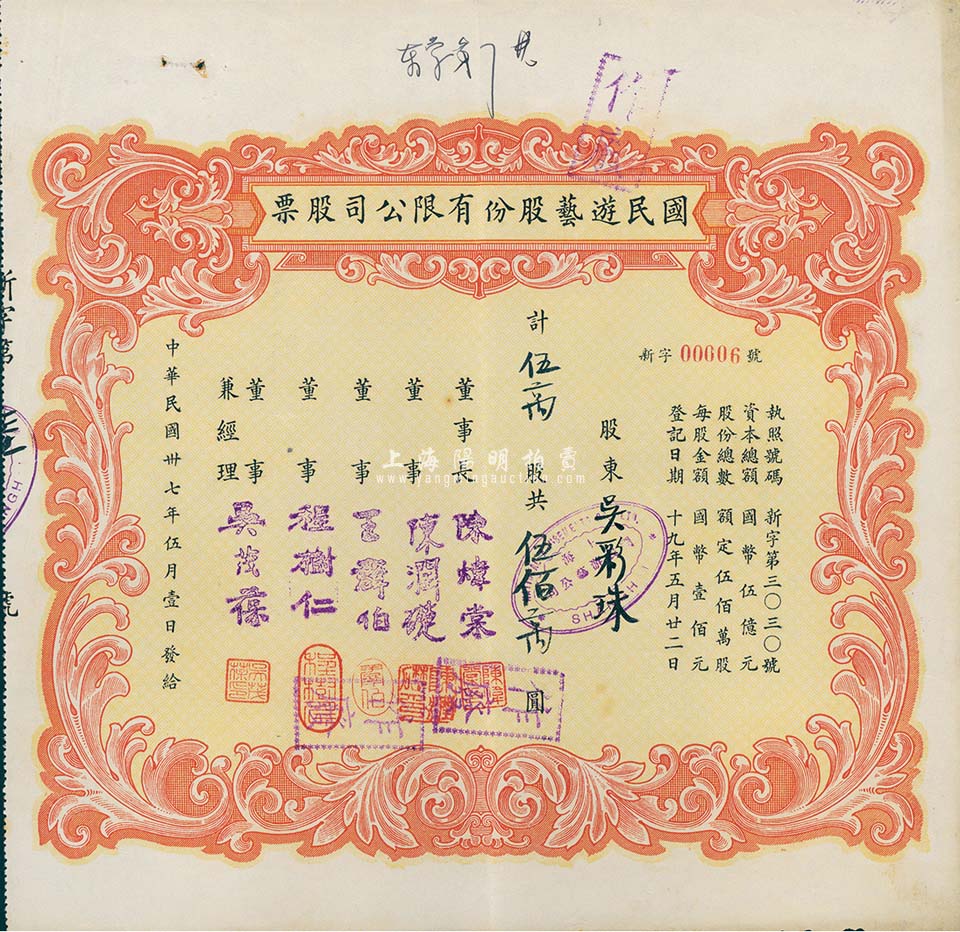 國民遊藝股份有限公司股票
新字 00606 號
執照號碼 新字第三〇三〇號
資本總額 國幣伍億元
股份總數 額定伍佰萬股
每股金額 國幣壹佰元
登記日期 十九年五月廿二日
股東 吳彩珠
計 伍萬 股共 伍佰萬 圓
董事長 陳煒棠
董事 陳潤礎
董事 王霖伯
董事 程樹仁
董事
兼經理 吳茂葆
中華民國卅七年伍月壹日發給
上海陽明拍賣
www.yangmingauction.com